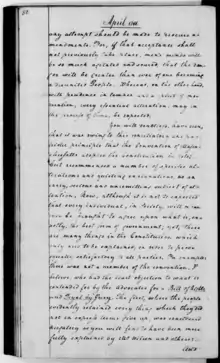 April 1788
any attempt should be made to procure a-
mendments. For, if that acceptance shall
not previously take place, men's minds will
be so much agitated and soured, that the dan-
ger will be greater than ever of our becoming
a disunited People. Whereas, on the other hand,
with prudence in temper and a spirit of mo-
deration, every essential alteration, may in
the process of time, be expected.
You will doubtless, have seen,
that it was owing to this conciliatory and pa-
triotic principle that the Convention of Massa-
chusetts adopted the Constitution in toto;
but recommended a number of specific al-
terations and quieting explanations, as an
early, serious and unremitting subject of at-
tention. Now, although it is not to be expected
that every individual, in Society, will or can
ever be brought to agree upon what is, ex-
actly, the best form of government; yet, there
are many things in the Constitution which
only need to be explained, in order to prove
equally satisfactory to all parties. For example:
there was not a member of the convention, I
believe, who had the least objection to what is
contended for by the advocates for a Bill of Rights
and Tryal by Jury. The first, where the people
evidently retained every thing which they did
not in express terms give up, was considered
nugatory as you will find to have been more
fully explained by Mr. Wilson and others:—